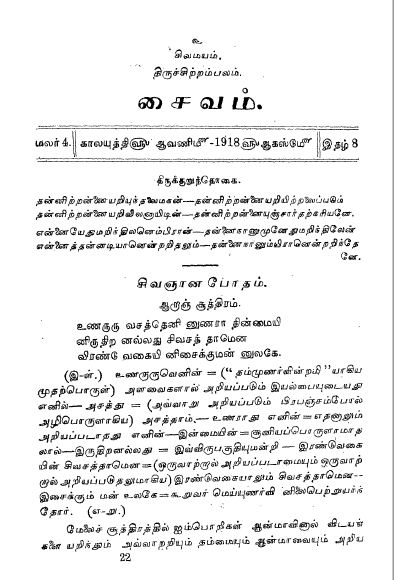 உ
சிவமயம்.
திருச்சிற்றம்பலம்.
சைவம்.
மலர் 4. காலயுத்தி௵ ஆவணி௴-1918௵ஆகஸ்ட்௴ இதழ் 8
திருக்குறுந்தொகை.
தன்னிற்றன்னையறியுந்தலைமகன்—தன்னிற்றன்னையறியிற்றலைப்படும்
தன்னிற்றன்னையறிவிலனாயிடின்—தன்னிற்றன்னையுஞ்சார்தற்கரியனே.
என்னையேதுமறிந்திலனெம்பிரான்—தன்னைநானுமுனேதுமறிந்திலேன்
என்னைத்தன்னடியானென்றறிதலும்—தன்னைநானும்பிரானென்றறிந்தே
னே.
சிவஞான போதம்.
ஆறாஞ் சூத்திரம்.
உணருரு வசத்தெனி னுணரா தின்மையி
னிருதிற னல்லது சிவசத் தாமென
விரண்டு வகையி னிசைக்குமன் னுலகே.
(இ-ள்.) உணருருவெனின் = (“தம்முணர்வின்றமி” யாகிய
முதற்பொருள்) அளவைகளால் அறியப்படும் இயல்பையுடையது
எனில்—அசத்து = (அவ்வாறு அறியப்படும் பிரபஞ்சம்போல்
அழிபொருளாகிய) அசத்தாம்.— உணராது எனின் = எதனாலும்
அறியப்படாதது எனின்—இன்மையின் = சூனியப்பொருளாமாத
லால்—இருதிறனல்லது = இவ்விருபகுதியுமன்றி — இரண்டுவகை
யின் சிவசத்தாமென = (ஒருவாற்றால் அறியப்படாமையும் ஒருவாற்
றால் அறியப்படுதலுமாகிய) இரண்டுவகையாலும் சிவசத்தாமென--
இசைக்கும் மன் உலகே = கூறுவர் மெய்யுணர்வி னிலைபெற்றுயர்ந்
தோர். (எ-று.)
மேலைச் சூத்திரத்தில் ஐம்பொறிகள் ஆன்மாவினால் விடயங்
களை யறிந்தும் அவ்வாறறியும் தம்மையும் ஆன்மாவையும் அறிய
22